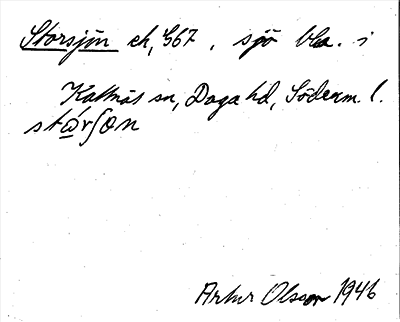 Storsjön ek, 567. sjö bla. i
Kattnäs sn, Daga hd, Söderm. l.
stά̤rʃon
Artur Olsson 1946